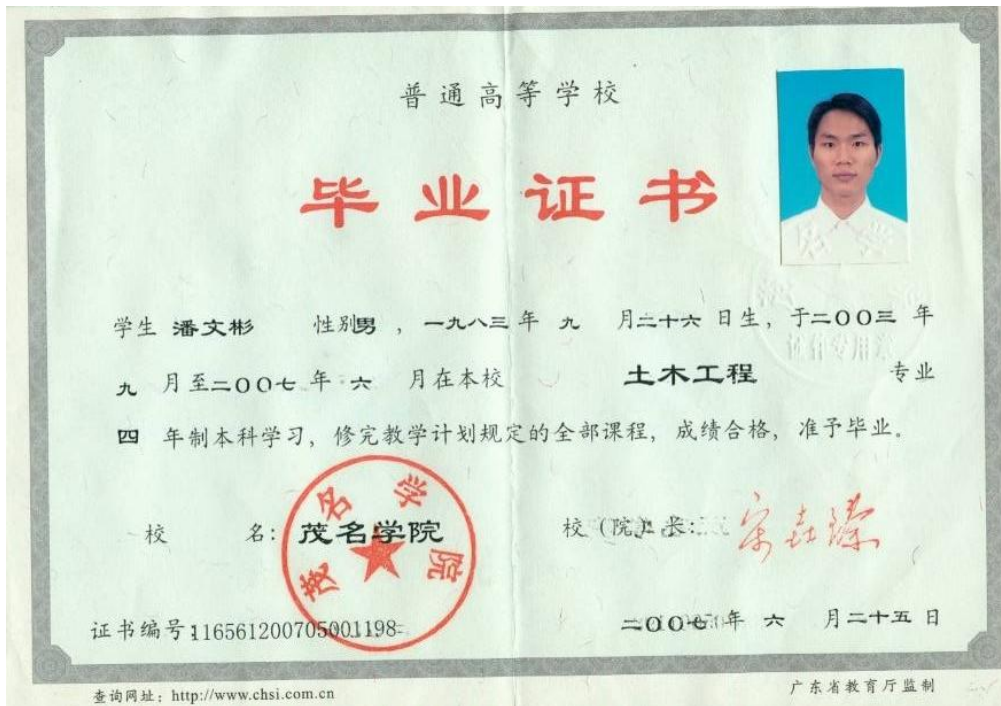 普通高等学校
毕业证书
学生 潘文彬 性别男，一九八三年 九 月二十六日生，于二〇〇三年
九 月至二〇〇七年 六 月在本校 土木工程 专业
四 年制本科学习，修完教学计划规定的全部课程，成绩合格，准予毕业。
校 名：茂名学院
茂名学院
校（院）长：
证书编号：116561200705001198
二〇〇七年 六 月二十五日
查询网址：http://www.chsi.com.cn
广东省教育厅监制